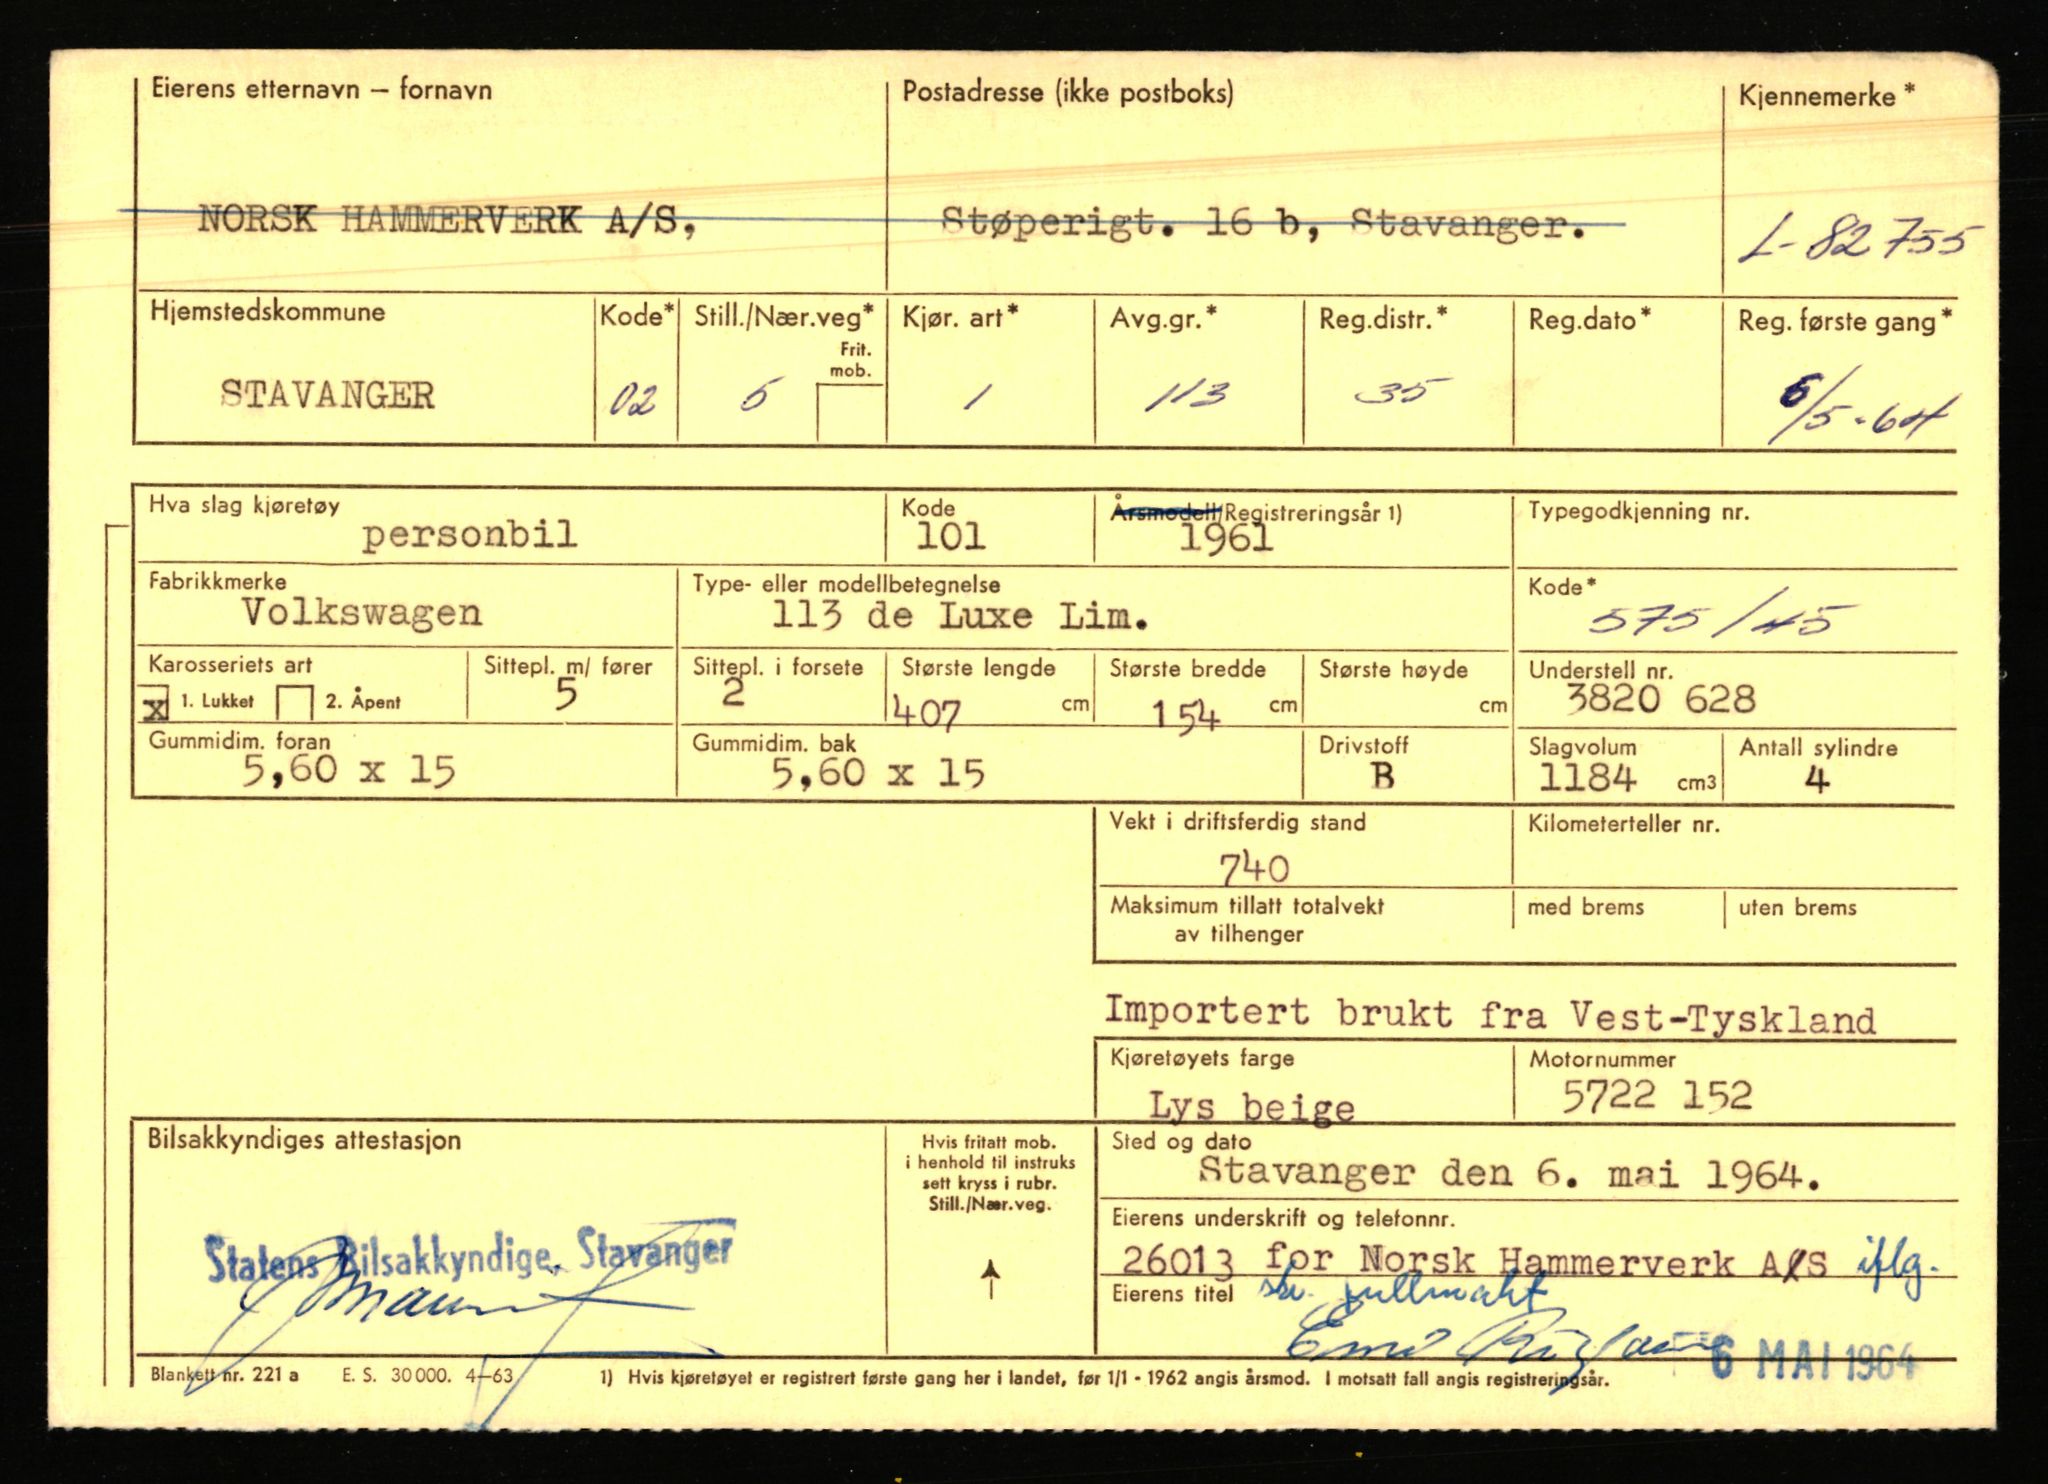 Eierens etternavn – fornavn Postadresse (ikke postboks) Kjennemerke*
NORSK HAMMERVERK A/S, Støperigt. 16 b, Stavanger. L-82755
Hjemstedskommune Kode* Still./Nær.veg* Kjør. art* Avg.gr.* Reg.distr.* Reg.dato* Reg. første gang*
Frit.
mob.
STAVANGER 02 5 1 113 35 6/5-64
Hva slag kjøretøy Kode Årsmodell/Registreringsår 1) Typegodkjenning nr.
personbil 101 1961
Fabrikkmerke Type- eller modellbetegnelse Kode*
Volkswagen 113 de Luxe Lim. 575/45
Karosseriets art Sittepl. m/ fører Sittepl. i forsete Største lengde Største bredde Største høyde Understell nr.
x 1. Lukket 2. Åpent 5 2 407 cm 154 cm cm 3820 628
Gummidim. foran Gummidim. bak Drivstoff Slagvolum Antall sylindre
5,60 x 15 5,60 x 15 B 1184 cm3 4
Vekt i driftsferdig stand Kilometerteller nr.
740
Maksimum tillatt totalvekt med brems uten brems
av tilhenger
Importert brukt fra Vest-Tyskland
Kjøretøyets farge Motornummer
Lys beige 5722 152
Bilsakkyndiges attestasjon Hvis fritatt mob. Sted og dato
i henhold til instruks
sett kryss i rubr.
Still./Nær.veg.
Stavanger den 6. mai 1964.
Eierens underskrift og telefonnr.
Statens Bilsakkyndige, Stavanger 26013 for Norsk Hammerverk A/S iflg.
Eierens titel skr. fullmakt
Emil
6 MAI 1964
Blankett nr. 221 a E. S. 30000. 4–63 1) Hvis kjøretøyet er registrert første gang her i landet, før 1/1 - 1962 angis årsmod. I motsatt fall angis registreringsår.